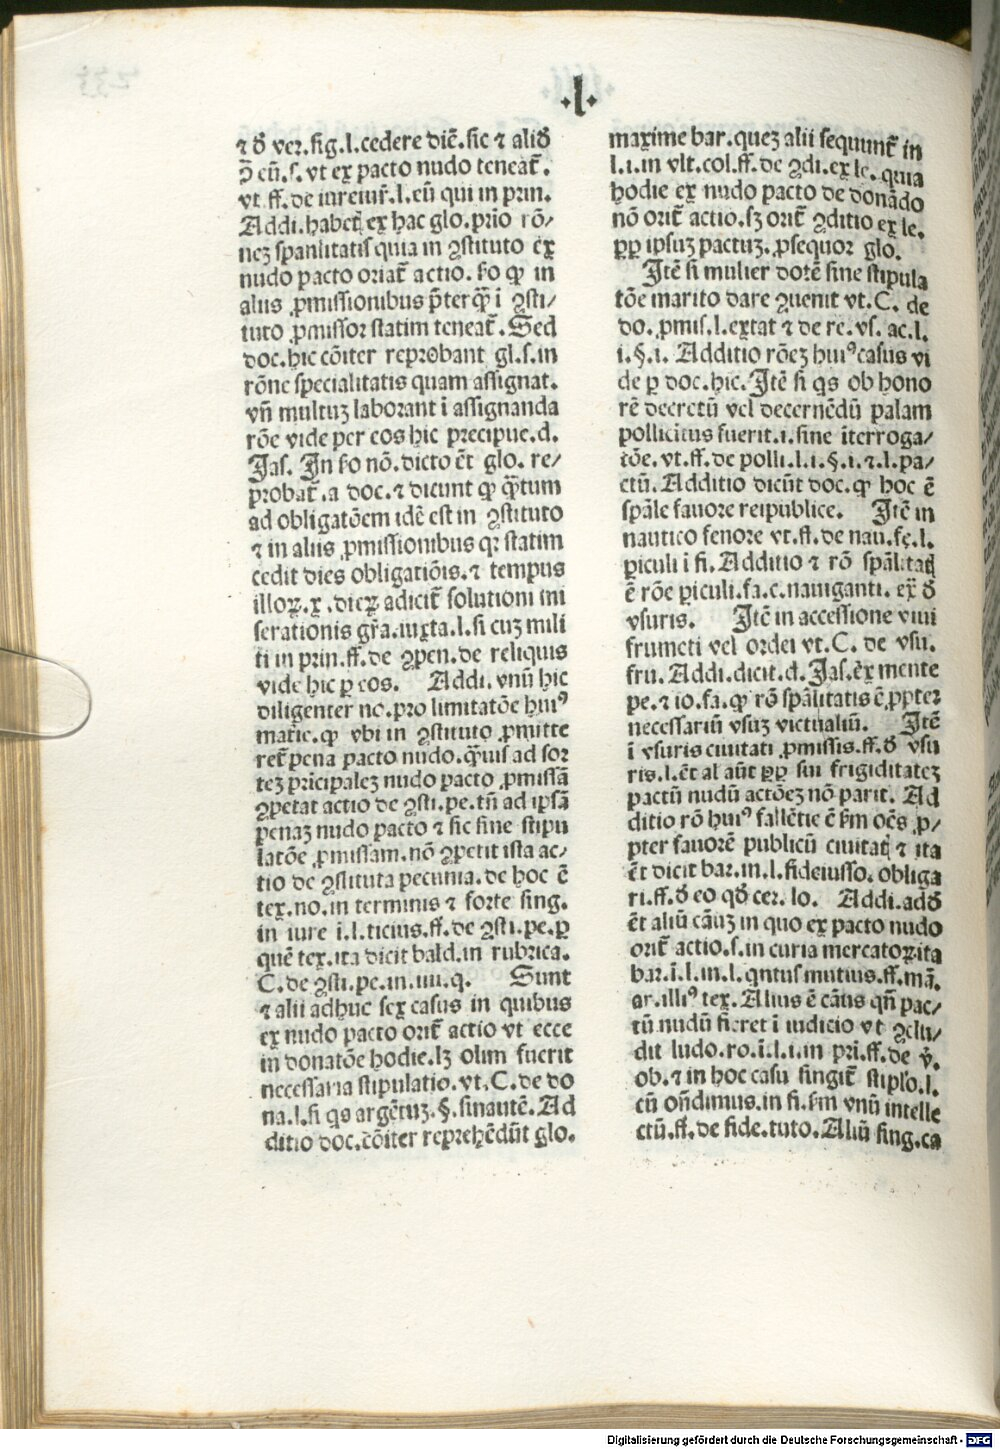 ·l·
⁊ ꝺ̃ ver.sig.l.cedere diē.sic ⁊ aliꝺ̃
eū.s.vt ex pacto nudo teneat̃.
vt.ff.de iureiur̃.l.eū qui in prin.
Addi.habet ex hac glo.prīo rō/
neꝫ spanlitatis quia in ꝯstituto ex
nudo pacto oriat̃ actio. ẜo qꝫ in
aliis ꝓmissionibus p̄terqͣꝫ ī ꝯsti/
tuto ꝓmissor statim teneat̃. Sed
doc.hic cōiter reprobant gl.s.in
rōne specialitatis quam assignat.
vn̄ multuꝫ laborant ī assignanda
rōe vide per eos hic precipue.d.
Jas. In ẜo nō.dicto ēt glo. re/
probat̃.a doc.⁊ dicunt ꝙ qͣ̄tum
ad obligatōem idē est in ꝯstituto
⁊ in aliis ꝓmissionibus qꝛ statim
cedit dies obligatiōis.⁊ tempus
illoꝝ.x.dieꝝ adicit̃ solutioni mi
serationis gr̄a.iuxta.l.si cuꝫ mili
ti in prin.ff.de ꝯpen.de reliquis
vide hic ꝑ eos. Addi.vnū hic
diligenter no.pro limitatōe huiꝰ
matīe.ꝙ vbi in ꝯstituto ꝓmitte
ret̃ pena pacto nudo.qͣuis ad sor
teꝫ pricipaleꝫ nudo pacto ꝓmissā
ꝯpetat actio de ꝯsti.pe.tn̄ ad ipsā
penaꝫ nudo pacto ⁊ sic sine stipu
latōe ꝓmissam.nō ꝯpetit ista ac/
tio de ꝯstituta pecunia.de hoc ē
tex.no.in terminis ⁊ forte sing.
in iure ī.l.ticius.ff.de ꝯsti.pe.ꝑ
quē tex.ita dicit bald.in rubrica.
C.de ꝯsti.pe.in.iiii.q. Sunt
⁊ alii adhuc sex casus in quibus
ex nudo pacto orit̃ actio vt ecce
in donatōe hodie.lꝫ olim fuerit
necessaria stipulatio.vt.C.de do
na.l.si qs argētuꝫ.§.sinautē.Ad
ditio doc.cōiter reprehēdūt glo.
maxime bar.queꝫ alii sequunt̃ in
l.i.in vlt.col.ff.de ꝯdi.ex le.quia
hodie ex nudo pacto de donādo
nō orit̃ actio.sꝫ orit̃ ꝯditio ex le.
ꝓꝑ ipsuꝫ pactuꝫ.ꝓsequor glo.
Itē si mulier dotē sine stipula
tōe marito dare ꝯuenit vt.C. de
do.ꝓmis.l.extat ⁊ de re.vx. ac.l.
i.§.i. Additio rōeꝫ huiꝰ casus vi
de ꝑ doc.hic. Itē si qs ob hono
rē decretū vel decernēdū palam
pollicitus fuerit.i.sine īterroga/
tōe.vt.ff.de polli.l.i.§.i.⁊.l.pa/
ctū. Additio dicūt doc.ꝙ hoc ē
spāle fauore reipublice. Itē in
nautico fenore vt.ff.de nau.fe.l.
ꝑiculi ī fi. Additio ⁊ rō spālitat
ē rōe ꝑiculi.fa.c.nauiganti. ex̃ ꝺ̃
vsuris. Itē in accessione vini
frumēti vel ordei vt.C. de vsu.
fru. Addi.dicit.d.Jas.ex mente
pe.⁊ io.fa.ꝙ rō spālitatis ē ꝓpter
necessariū vsuꝫ victualiū. Itē
ī vsuris ciuitati ꝓmissis.ff.ꝺ̃ vsu
ris.l.ēt al aūt ꝓꝑ sui frigiditateꝫ
pactū nudū actōeꝫ nō parit. Ad
ditio rō huiꝰ fallētie ē ẜm oēs ꝓ/
pter fauorē publicū ciuitat ⁊ ita
ēt dicit bar.in.l.fideiusso.obliga
ri.ff.ꝺ̃ eo qꝺ̃ cer.lo. Addi.adꝺ̃
ēt aliū cāuꝫ in quo ex pacto nudo
orit̃ actio.s.in curia mercatoꝝ.ita
bar.ī.l.in.l.qntus mutius.ff.mā.
ar.illiꝰ tex. Alius ē cāus qn̄ pac/
tū nudū fieret ī iudicio vt ꝯclu/
dit ludo.ro.ī.l.i.in prī.ff.de v̄.
ob.⁊ in hoc casu fingit̃ stipl̃o.l.
cū on̄dimus.in fi.ẜm vnū intelle
ctū.ff.de fide.tuto. Aliū sing.ca
Digitalisierung gefördert durch die Deutsche Forschungsgemeinschaft - DFG